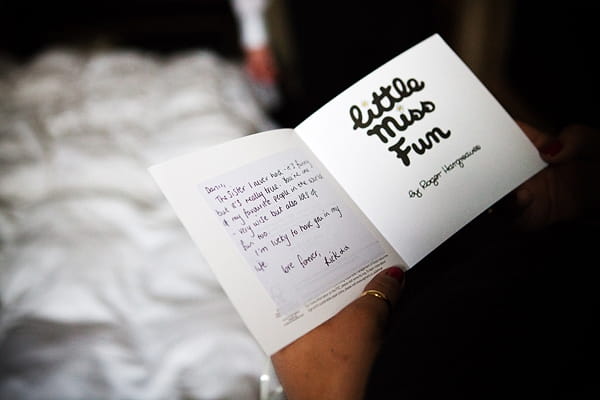 The Sister I never had - it's funny
but it's really true. You're one
of my favourite people in the world
- very wise but also lots of
fun too.
I'm lucky to have you in my
life
love forever,
little
miss
Fun
By Roger Hargreaves